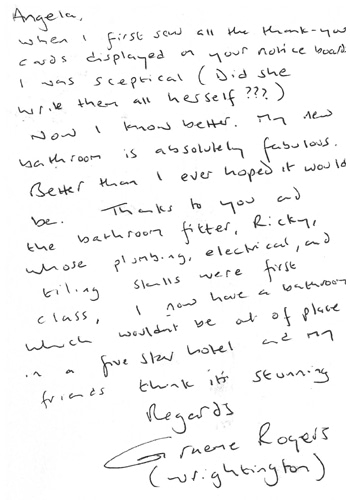 Angela,
When I first saw all the thank-you
cards displayed on your notice board
I was sceptical (Did she
write them all herself???)
Now I know better. My new
bathroom is absolutely fabulous.
Better than I ever hoped it would
be. Thanks to you and
the bathroom fitter, Ricky,
whose plumbing, electrical, and
tiling skills were first
class, I now have a bathroom
which wouldn't be out of place
in a five star hotel and my
friends think it's stunning
Regards
Graeme Rogers
(Wrightington)